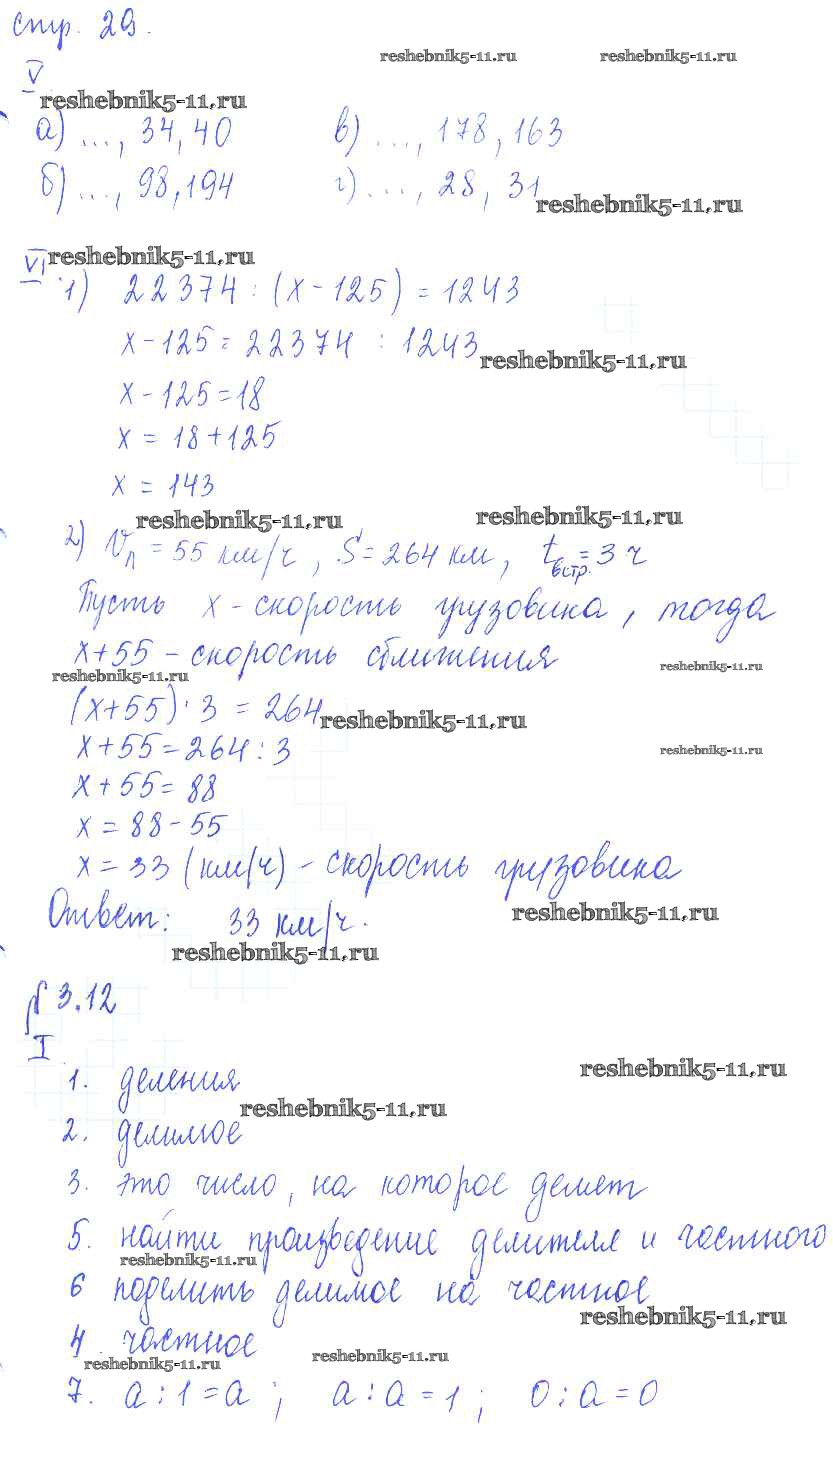 стр. 29.
reshebnik5-11.ru reshebnik5-11.ru
V
reshebnik5-11.ru
а) ..., 34, 40 в) ..., 178, 163
б) ..., 98, 194 г) ..., 28, 31
reshebnik5-11.ru
VI reshebnik5-11.ru
1) 22374 : (x - 125) = 1243
x - 125 = 22374 : 1243
reshebnik5-11.ru
x - 125 = 18
x = 18 + 125
x = 143
reshebnik5-11.ru reshebnik5-11.ru
2) Vл = 55 км/ч, S = 264 км, tвстр. = 3 ч
Пусть x - скорость грузовика, тогда
x + 55 - скорость сближения
reshebnik5-11.ru reshebnik5-11.ru
(x + 55) · 3 = 264
reshebnik5-11.ru
x + 55 = 264 : 3
reshebnik5-11.ru
x + 55 = 88
x = 88 - 55
x = 33 (км/ч) - скорость грузовика
Ответ: 33 км/ч.
reshebnik5-11.ru
reshebnik5-11.ru
№ 3.12
I
reshebnik5-11.ru
1. деления
reshebnik5-11.ru
2. делимое
3. это число, на которое делят
5. найти произведение делителя и частного
reshebnik5-11.ru
6 поделить делимое на частное
reshebnik5-11.ru
4. частное
reshebnik5-11.ru reshebnik5-11.ru
7. a : 1 = a ; a : a = 1 ; 0 : a = 0